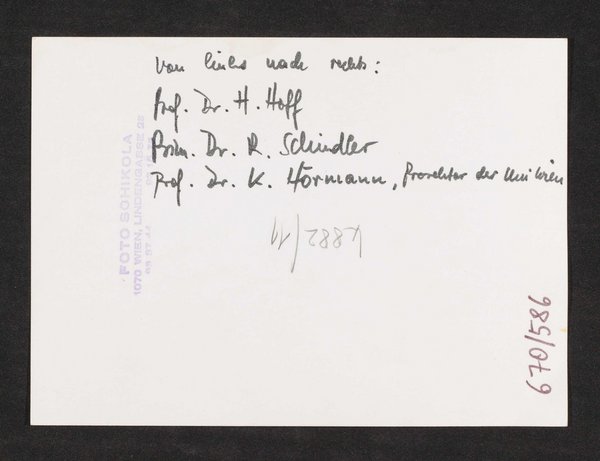 von links nach rechts:
Prof. Dr. H. Hoff
Prim. Dr. R. Schindler
Prof. Dr. K. Hörmann, Prorektor der Uni Wien
FOTO SCHIKOLA
1070 WIEN, LINDENGASSE
670/586